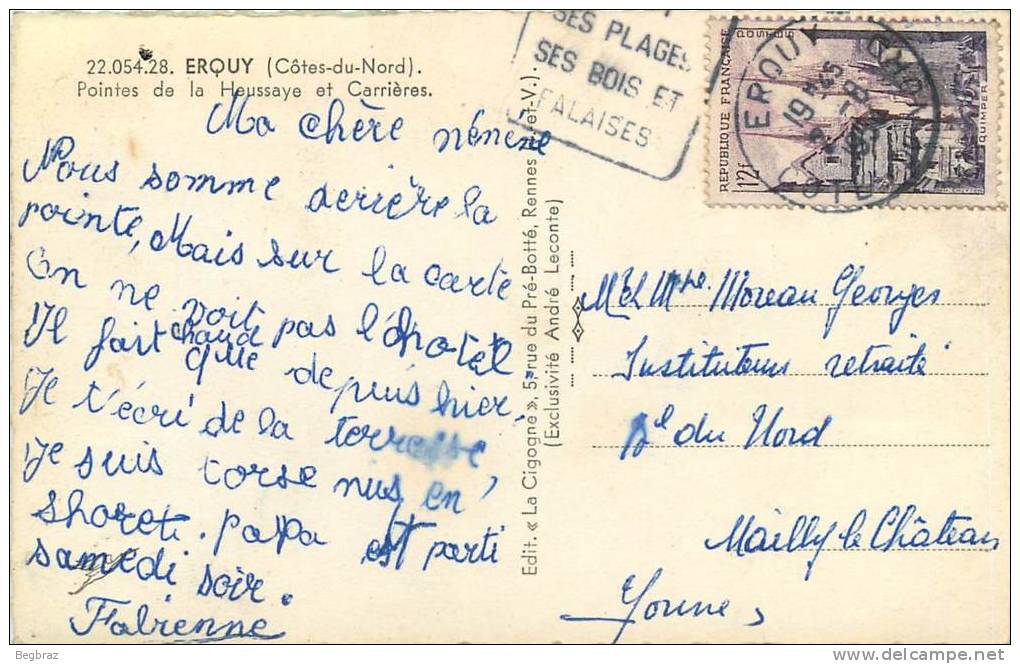 22.054.28. ERQUY (Côtes-du-Nord).
Pointes de la Heussaye et Carrières.
Ma chère nénene
Nous somme derière la
pointe, Mais sur la carte
On ne voit pas l'hotel.
Il fait chaud
que depuis hier.
Je t'écri de la terrasse,
Je suis torse nus en
shoret. papa est parti
samedi soir.
Fabienne
SES PLAGES
SES BOIS ET
FALAISES
Edit. « La Cigogne », 5, rue du Pré-Botté, Rennes (I.-et-V.).
(Exclusivité André Leconte)
REPUBLIQUE FRANÇAISE
POSTES
12f
QUIMPER
ERQUY
19 H 45
M et Mme Moreau Georges
Instituteurs retraité
Bd du Nord
Mailly le Château
Yonne
Begbraz
www.delcampe.net